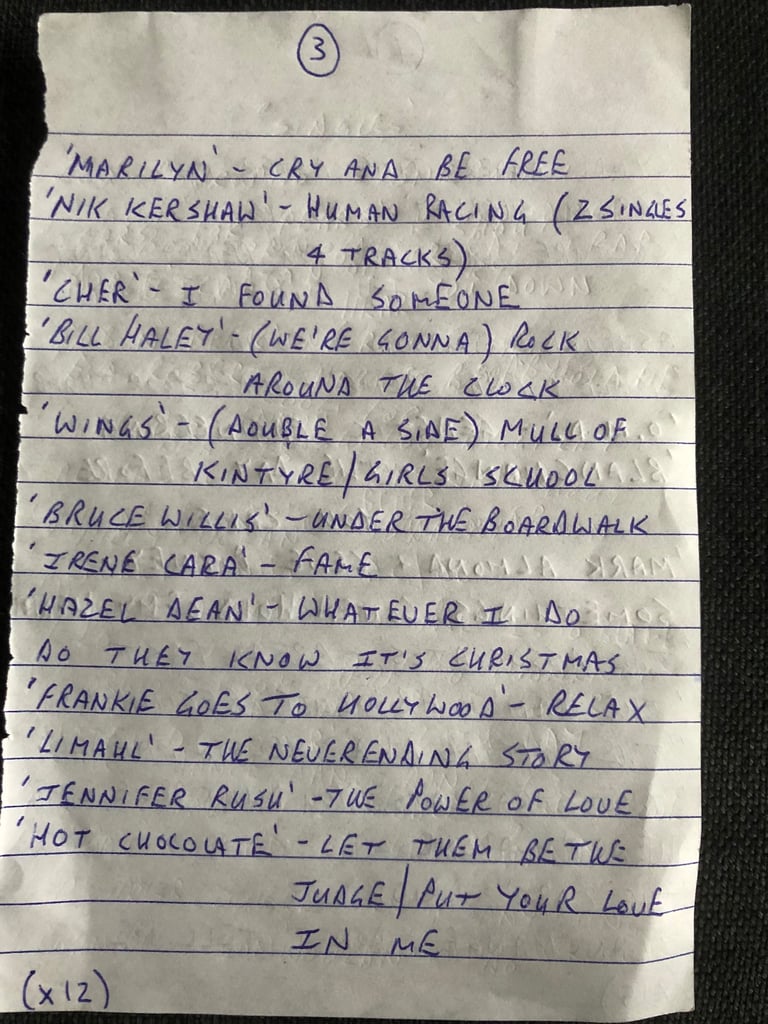 3
'MARILYN' - CRY AND BE FREE
'NIK KERSHAW' - HUMAN RACING (2 SINGLES
4 TRACKS)
'CHER' - I FOUND SOMEONE
'BILL HALEY' - (WE'RE GONNA) ROCK
AROUND THE CLOCK
'WINGS' - (DOUBLE A SIDE) MULL OF
KINTYRE/GIRLS SCHOOL
'BRUCE WILLIS' - UNDER THE BOARDWALK
'IRENE CARA' - FAME
'HAZEL DEAN' - WHATEVER I DO
DO THEY KNOW IT'S CHRISTMAS
'FRANKIE GOES TO HOLLYWOOD' - RELAX
'LIMAHL' - THE NEVERENDING STORY
'JENNIFER RUSH' - THE POWER OF LOVE
'HOT CHOCOLATE' - LET THEM BE THE
JUDGE/PUT YOUR LOVE
IN ME
(x12)